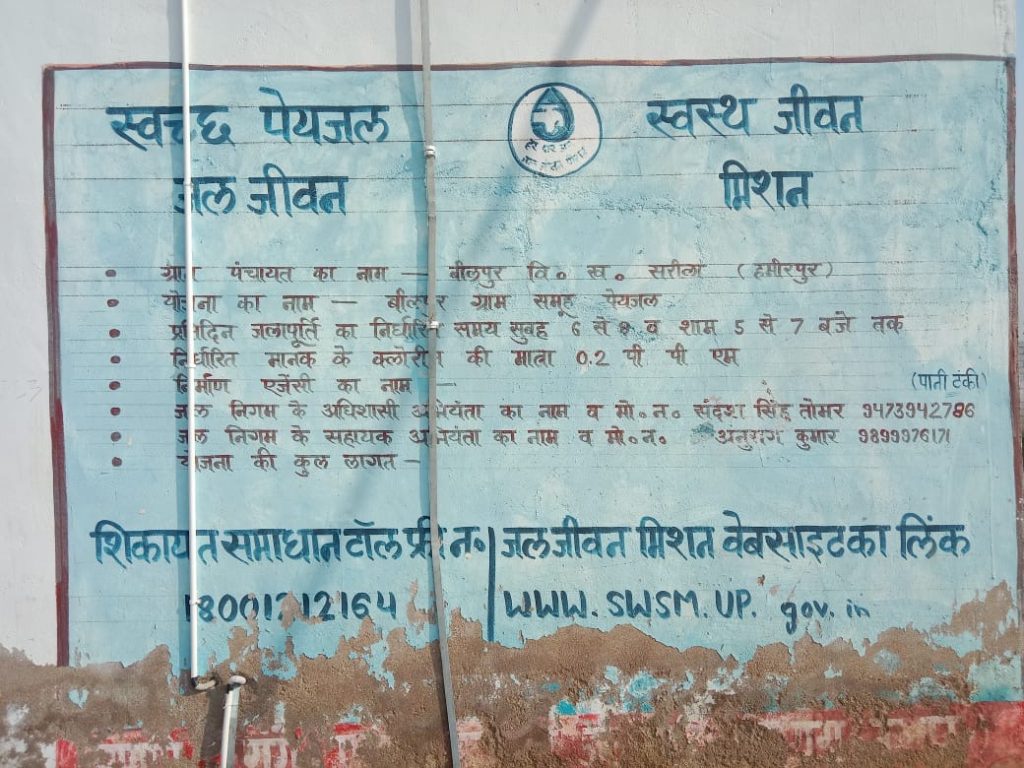 स्वच्छ पेयजल स्वस्थ जीवन
जल जीवन मिशन
हर घर जल
• ग्राम पंचायत का नाम — बीलपुर वि० ख० सरीला (हमीरपुर)
• योजना का नाम — बीलपुर ग्राम समूह पेयजल
• प्रतिदिन जलापूर्ति का निर्धारित समय सुबह 6 से व शाम 5 से 7 बजे तक
• निर्धारित मानक के क्लोरीन की मात्रा 0.2 पी पी एम
• निर्माण एजेंसी का नाम — (पानी टंकी)
• जल निगम के अधिशासी अभियंता का नाम व मो०न० संदेश सिंह तोमर 9473942786
• जल निगम के सहायक अभियंता का नाम व मो०न० अनुराग कुमार 9899976171
• योजना की कुल लागत —
शिकायत समाधान टॉल फ्री न०
18001212164
जल जीवन मिशन वेबसाइट का लिंक
WWW.SWSM.UP.gov.in